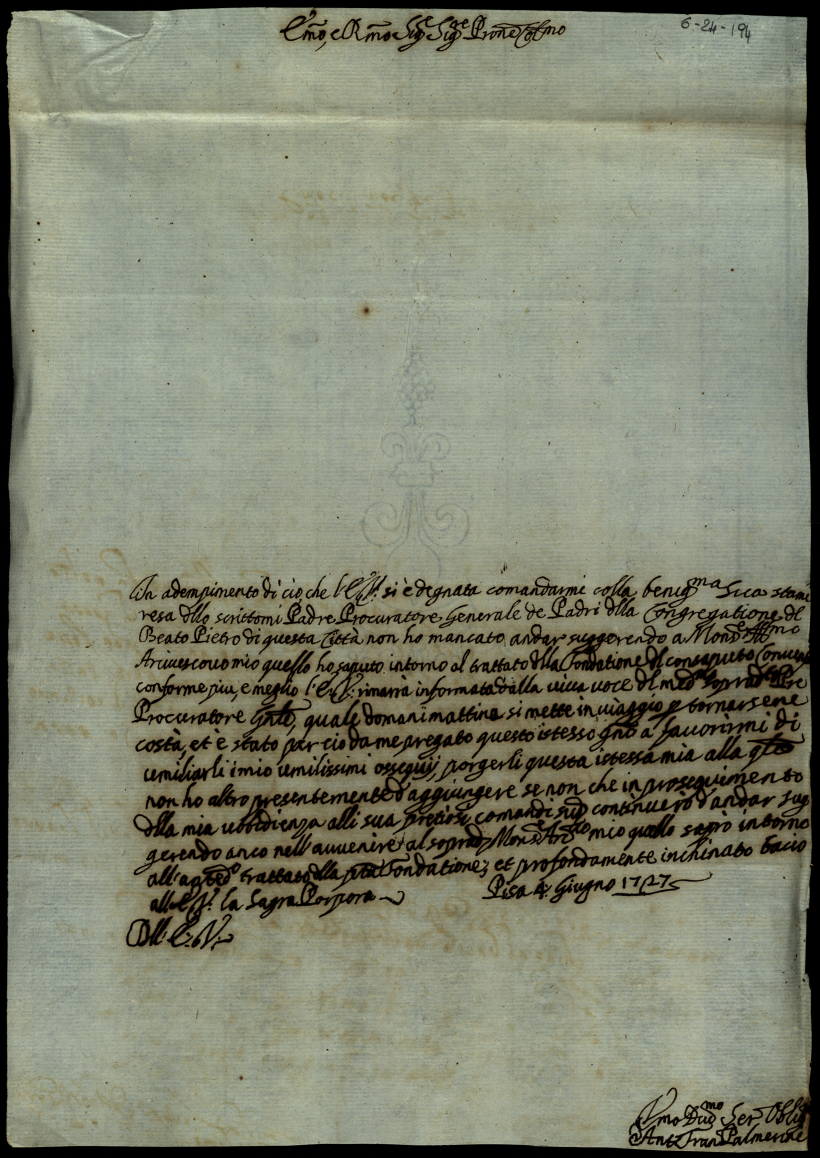 6-24-194
E.mo, e R.mo Sig.re Sig.re Prone Col.mo
In adempimento di ciò, che l'E.V. si è degnata comandarmi colla benig.ma sua stami
resa dllo scrittomi Padre Procuratore Generale de Padri dlla Congregatione dl
Beato Pietro di questa Città non ho mancato andar suggerendo a Mons.re Ill.mo
Arcivescovo mio quello ho saputo intorno al trattato dlla Fondatione dl consaputo Convento
conforme piu, e meglio l'E.V. rimarrà informata dalla viva voce dl med.o soprad.o Pre
Procuratore Gnle, quale domani mattina si mette in viaggio p tornarsene
costà, et è stato per ciò da me pregato questo istesso gno a favorirmi di
umiliarli i mio umilissimi ossequij, porgerli questa istessa mia alla qle
non ho altro presentemente d'aggiungere se non che in proseguimento
dlla mia ubbidienza alli sua pretiosi comandi sud continuerò d'andar sug
gerendo anco nell'avvenire al soprad.o Mons.re Arc.vo mio quello saprò intorno
all' trattato dlla pta Fondatione; et profondamente inchinato bacio
all'E.V. la Sagra Porpora Pisa 4 Giugno 1727
Dll'E.V.
V.mo Du.mo Ser. Obblig
Ant. Fran. Palmerini